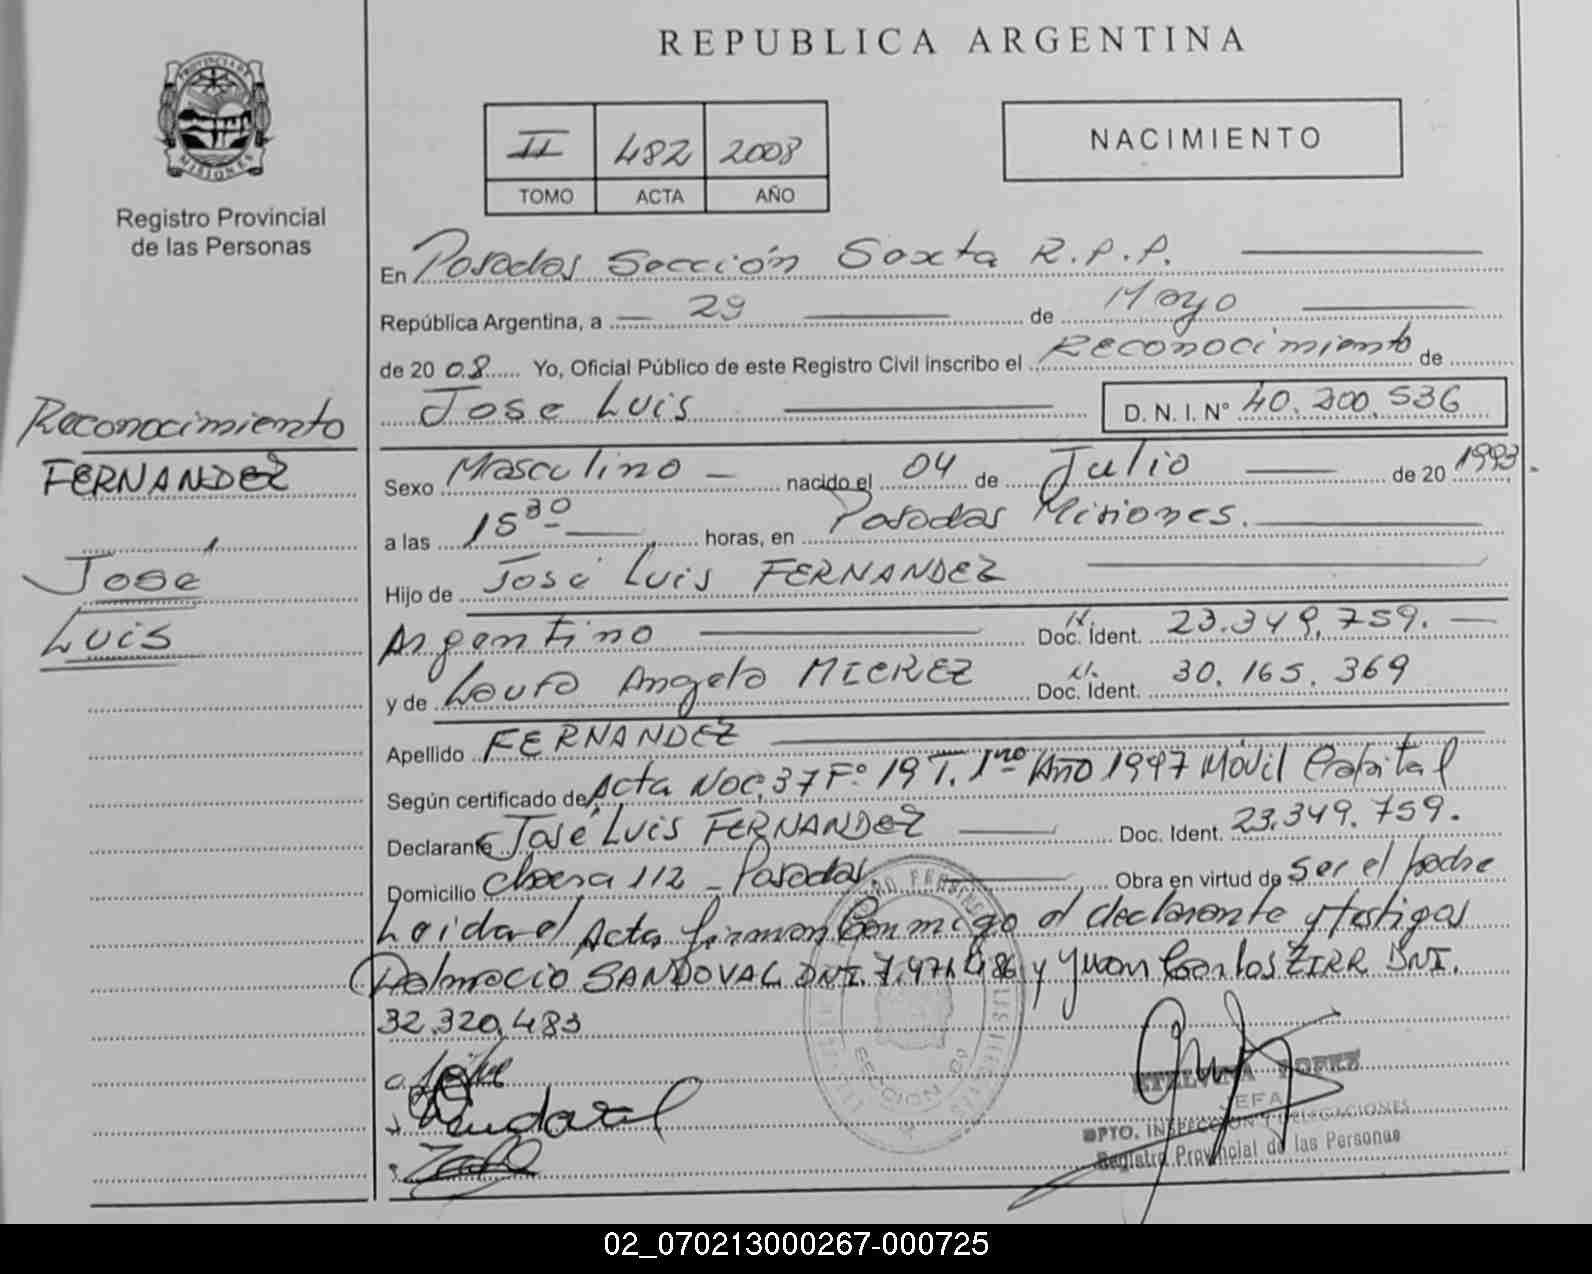 REPUBLICA ARGENTINA
PROVINCIA DE
MISIONES
Registro Provincial
de las Personas
II 482 2008
TOMO ACTA AÑO
NACIMIENTO
En Posadas Sección Sexta R.P.P.
República Argentina, a 29 de Mayo
de 2008 Yo, Oficial Público de este Registro Civil inscribo el Reconocimiento de
Jose Luis D. N. I. N° 40.200.536
Reconocimiento
FERNANDEZ
José
Luis
Sexo Masculino nacido el 04 de Julio de 20 1993.
a las 15 30 horas, en Posadas Misiones.
Hijo de José Luis FERNANDEZ
Argentino Doc. Ident. N. 23.349.759.
y de Laura Angela MIEREZ Doc. Ident. N. 30.165.369
Apellido FERNANDEZ
Según certificado de Acta Nac. 37 F° 19 T. 1no Año 1997 Móvil Capital
Declarante José Luis FERNANDEZ Doc. Ident. 23.349.759.
Domicilio Chacra 112 - Posadas. Obra en virtud de ser el padre
Leida el Acta firman conmigo el declarante y testigos
Dalmacio SANDOVAL DNI. 7.471.486 y Juan Carlos ZIRR DNI.
32.320.483
SECCION
LOPEZ
JEFA
DPTO. INSPECCION Y DELEGACIONES
Registro Provincial de las Personas
02_070213000267-000725